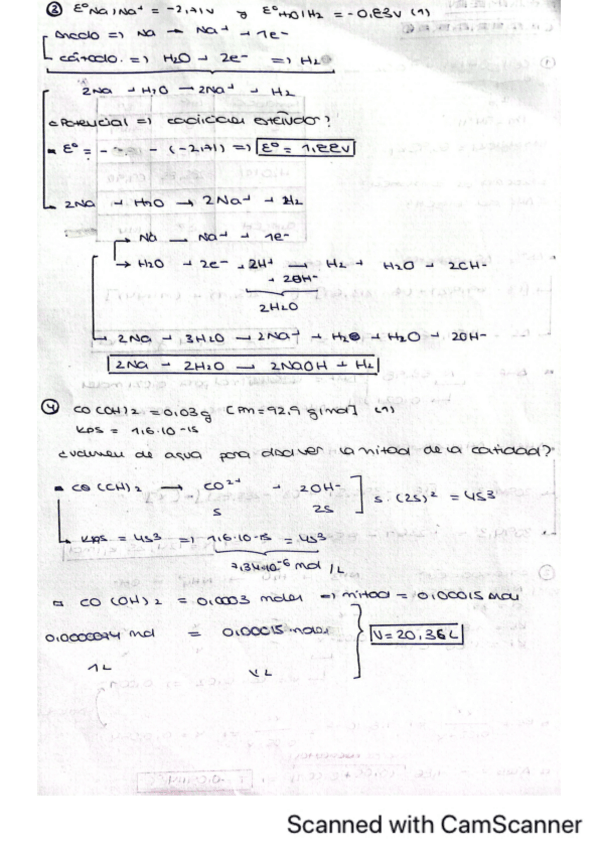 ③ Eº Na/Na+ = -2,71V y Eº H2O/H2 = -0,83V (1)
Ánodo => Na → Na+ + 1e-
Cátodo => H2O + 2e- => H2
2Na + H2O → 2Na+ + H2
¿Potencial => estándar?
Eº = - - (-2,71) => Eº = 1,88V
2Na + H2O → 2Na+ + H2
Na → Na+ + 1e-
H2O + 2e- + 2H+ → H2 + H2O + 2OH-
+ 2OH-
2H2O
2Na + 3H2O → 2Na+ + H2 + H2O + 2OH-
2Na + 2H2O → 2NaOH + H2
④ CO(OH)2 = 0,03g [Pm = 92,9 g/mol] (1)
KPS = 1,6·10-15
¿volumen de agua para disolver la mitad de la cantidad?
CO(OH)2 → CO2+ + 2OH-
S 2S
S·(2S)2 = 4S3
KPS = 4S3 => 1,6·10-15 = 4S3
7,34·10-6 mol/L
CO(OH)2 = 0,0003 moles => mitad = 0,00015 mol
mol = 0,00015 moles
V = 20,36L
1L VL
Scanned with CamScanner